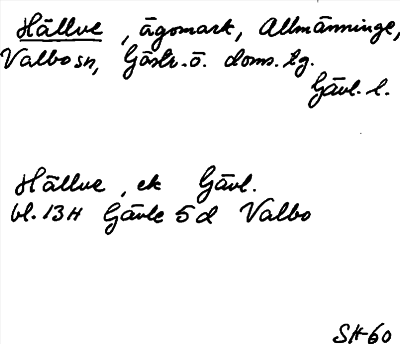 Hällve, ägomark, Allmänninge,
Valbo sn, Gästr. ö. doms. tg.
Gävl. l.
Hällve, ek Gävl.
bl. 13H Gävle 5d Valbo
SH-60